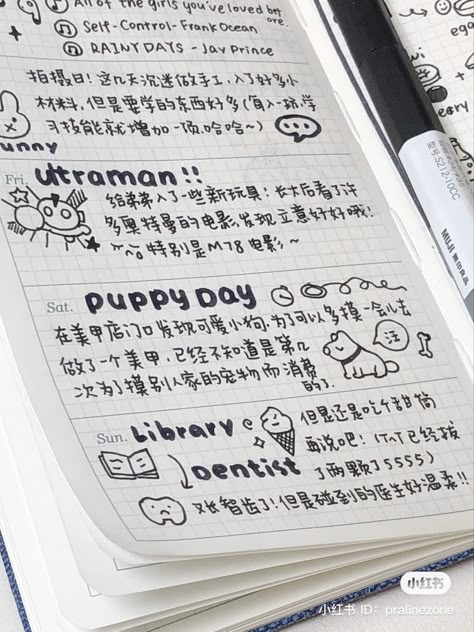 All of the girls you've loved before.
Self-Control - Frank Ocean
RAINY DAYS - Jay Prince
拍摄日！这几天沉迷做手工，入了好多小
材料，但是要学的东西好多（每入一坑，学
习技能就增加一项，哈哈~）
unny
Fri. Ultraman!!
给弟弟入了一些新玩具！长大后看了许
多奥特曼的电影，发现立意好好哦！
特别是M78电影~
Sat. PUPPY DAY
在美甲店门口发现可爱小狗，为了可以多摸一会儿去
做了一个美甲，已经不知道是第几
次为了摸别人家的宠物而消费
的了.
汪
Sun. Library
但是还是吃个甜筒
再说吧！（TAT已经拔
Dentist 了两颗了5555）
又长智齿了！但是碰到的医生好温柔!!
MUJI 無印良品
小红书
小红书 ID: pralinezone